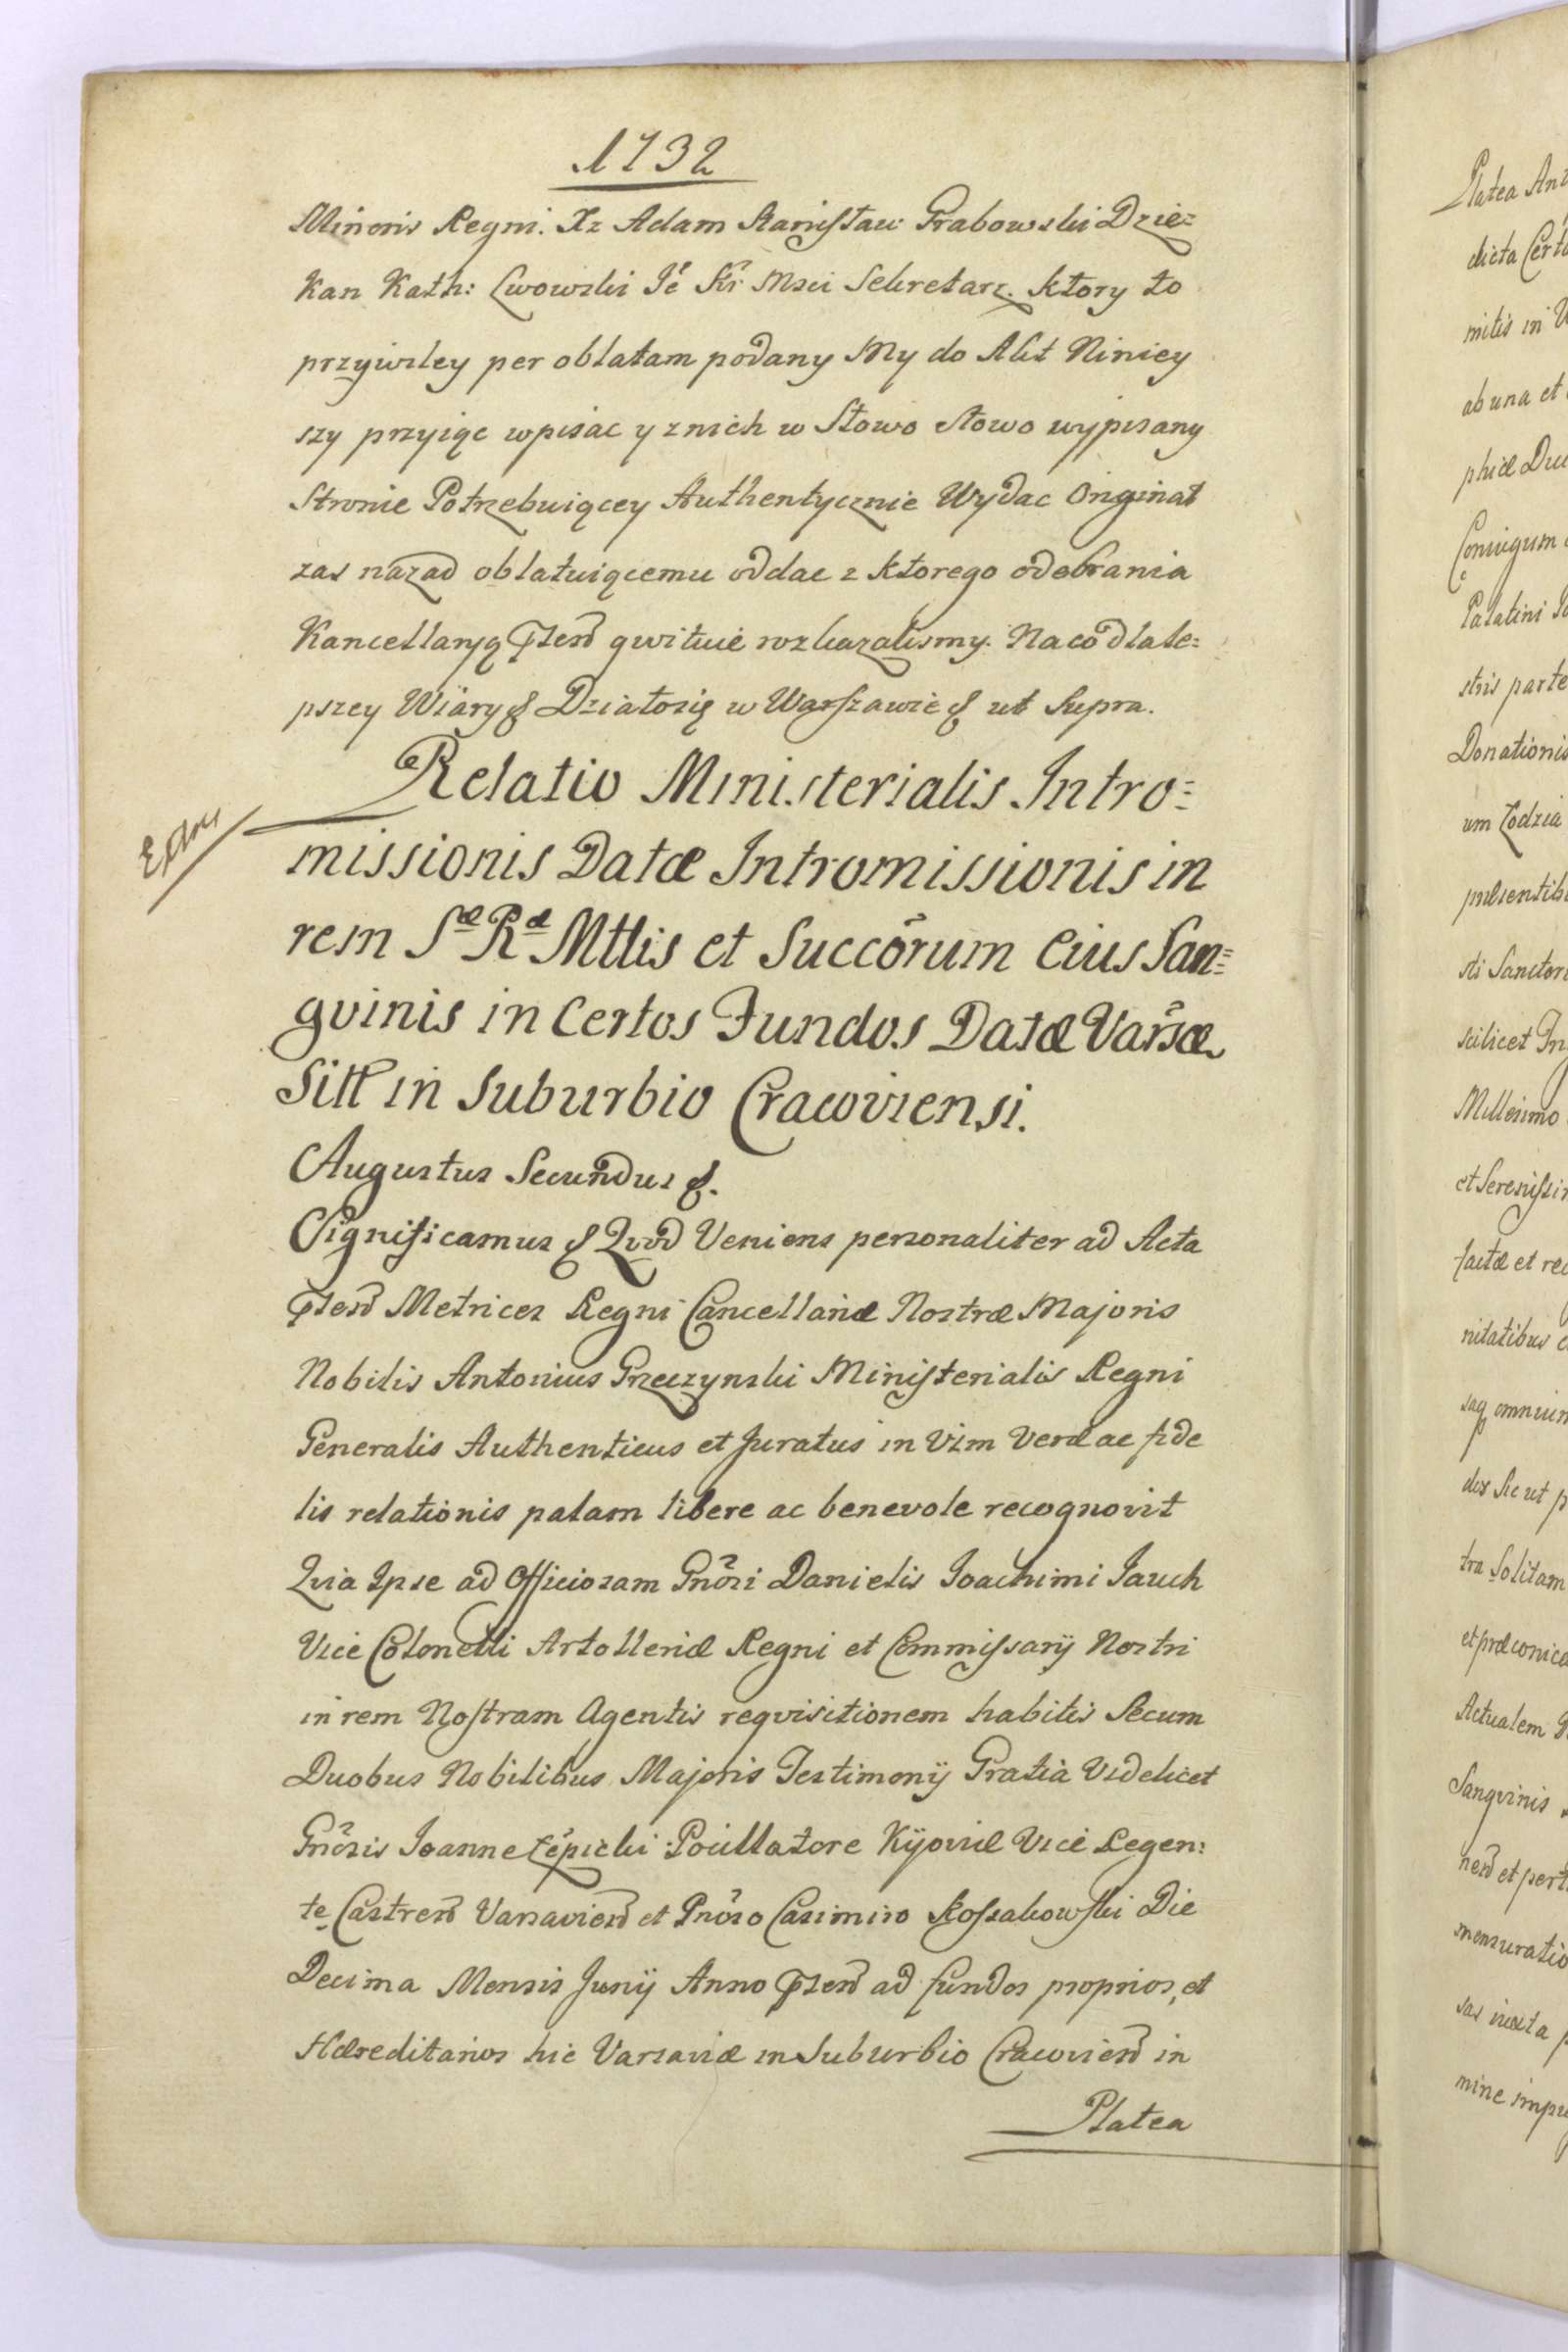 1732
Minoris Regni. Xz Adam Stanisław Grabowski Dzie=
kan Kath: Lwowski Jé Kr Msci Sekretarz. ktory to
przywiley per oblatam podany My do Akt Niniey
szy przyiąc wpisac y z nich w Słowo słowo wypisany
Stronie Potrzebuiącey Authentycznie Wydac Originał
zas nazad oblatuiącemu oddac z ktorego odebrania
Kancellaryą pñtem qwituie rozkazalismy. Na co dla le=
pszey Wiary & Działosię w Warszawie & ut Supra.
Relatio Ministerialis Intro=
missionis Datæ Intromissionis in
rem Sæ Ræ Mttis et Succõrum Eius San=
gvinis in Certos Fundos Datæ Varsæ
Sitt in Suburbio Cracoviensi.
Augustus Secundus &.
Significamus & Qvod Veniens personaliter ad Acta
Metrices Regni Cancellariæ Nostræ Majoris
Nobilis Antonius Grzeczynski Ministerialis Regni
Generalis Authenticus et Juratus in Vim Veræ ac fide
lis relationis palam libere ac benevole recognovit
Qvia Ipse ad Officiosam Gnõsi Danielis Joachimi Jauch
Vice Colonelli Artolleriæ Regni et Commissarij Nostri
in rem Nostram Agentis reqvisitionem habitis Secum
Duobus Nobilibus Majoris Testimonij Gratia Videlicet
Gnõsis Joanne Łępicki Pocillatore Kijoviæ Vice Regen=
te Castren Varsavien et Gnõso Casimiro Kossakowski Die
Decima Mensis Junij Anno ad fundos proprios, et
Hæreditarios hic Varsaviæ in Suburbio Cracovien in
Platea
Platea
dicta
mitis in
ab una et
phiæ
Coniugum
Palatini
stris parte
Donationis
um Łodzia
præsentib
sti
scilicet
Millesimo
et Serenissi
factæ et
nitatibus
omnium
Sic ut
tra Solitam
et præconica
Actualem
Sangvinis
et pert
mensuratio
sas iuxta
mine